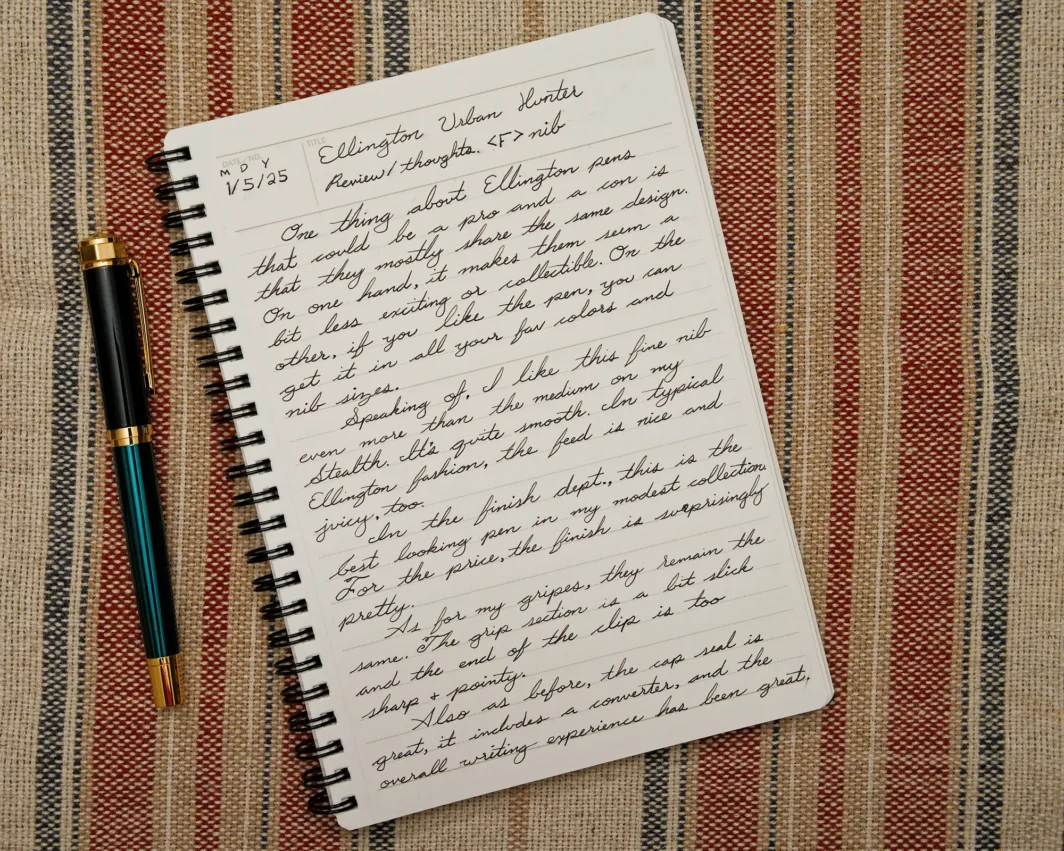 DATE/NO.
M D Y
1/5/25
TITLE
Ellington Urban Hunter
Review/thoughts. <F> nib
One thing about Ellington pens
that could be a pro and a con is
that they mostly share the same design.
On one hand, it makes them seem a
bit less exciting or collectible. On the
other, if you like the pen, you can
get it in all your fav colors and
nib sizes.
Speaking of, I like this fine nib
even more than the medium on my
Stealth. It's quite smooth. In typical
Ellington fashion, the feed is nice and
juicy, too.
In the finish dept., this is the
best looking pen in my modest collection.
For the price, the finish is surprisingly
pretty.
As for my gripes, they remain the
same. The grip section is a bit slick
and the end of the clip is too
sharp + pointy.
Also as before, the cap seal is
great, it includes a converter, and the
overall writing experience has been great.